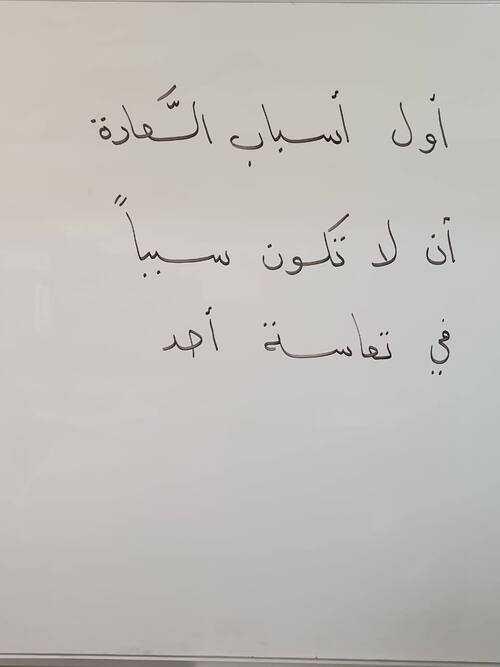 أول أسباب السَّعادة
أن لا تكون سبباً
في تعاسة أحد